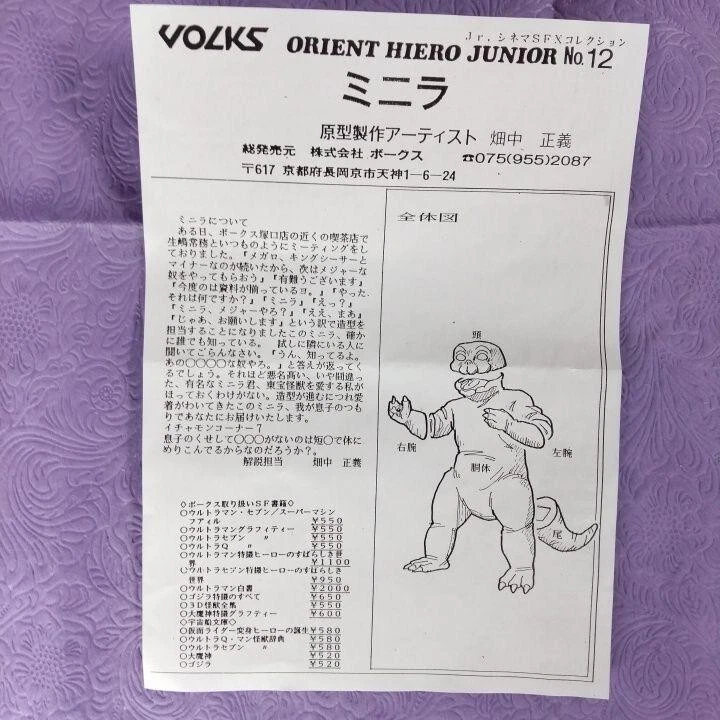 VOLKS
Jr.シネマSFXコレクション
ORIENT HIERO JUNIOR No.12
ミニラ
原型製作アーティスト 畑中 正義
総発売元 株式会社 ボークス ☎075(955)2087
〒617 京都府長岡京市天神1-6-24
ミニラについて
ある日、ボークス塚口店の近くの喫茶店で
生嶋常務といつものようにミーティングをし
ておりました。『メガロ、キングシーサーと
マイナーなのが続いたから、次はメジャーな
奴をやってもらおう』『有難うございます』
『今度のは資料が揃っているヨ。』『やった。
それは何ですか?』『ミニラ』『えっ?』
『ミニラ、メジャーやろ?』『ええ、まあ』
『じゃあ、お願いします』という訳で造型を
担当することになりましたこのミニラ、確か
に誰でも知っている。 試しに隣にいる人に
聞いてごらんなさい。『うん、知ってるよ。
あの〇〇〇〇な奴やろ。』と答えが返ってく
るでしょう。それほど悪名高い、いや間違っ
た、有名なミニラ君、東宝怪獣を愛する私が
ほっておくわけがない。造型が進むにつれ愛
着がわいてきたこのミニラ、我が息子のつも
りであなたにお届けいたします。
イチャモンコーナー7
息子のくせして〇〇〇がないのは短〇で体に
めりこんでるからなのだろうか?。
解説担当 畑中 正義
◇ボークス取り扱いSF書籍◇
〇ウルトラマン・セブン/スーパーマシン
ファィル ¥550
〇ウルトラマングラフィティー ¥550
〇ウルトラセブン 〃 ¥550
〇ウルトラQ 〃 ¥550
〇ウルトラマン特撮ヒーローのすばらしき世
界 ¥1100
〇ウルトラセブン特撮ヒーローのすばらしき
世界 ¥950
〇ウルトラマン白書 ¥2000
〇ゴジラ特撮のすべて ¥650
〇3D怪獣全集 ¥550
〇大魔神特撮グラフティー ¥600
◇宇宙船文庫◇
〇仮面ライダー変身ヒーローの誕生¥580
〇ウルトラQ・マン怪獣辞典 ¥580
〇ウルトラセブン 〃 ¥580
〇大魔神 ¥520
〇ゴジラ ¥520
全体図
頭
右腕
胴休
左腕
尾